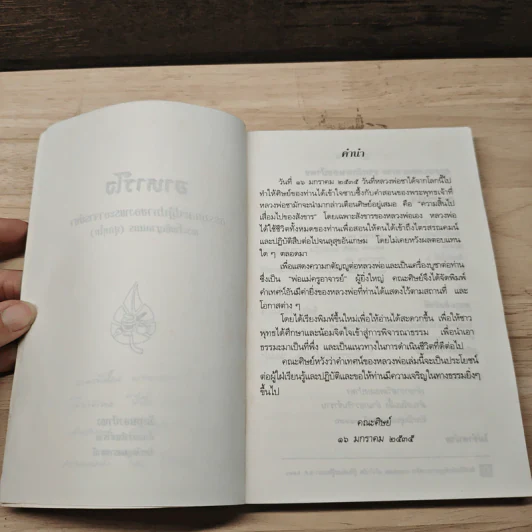 คำนำ
วันที่ ๑๖ มกราคม ๒๕๓๕ วันที่หลวงพ่อชาได้จากโลกนี้ไป
ทำให้ศิษย์ของท่านได้เข้าใจซาบซึ้งกับคำสอนของพระพุทธเจ้าที่
หลวงพ่อชามักจะนำมากล่าวเตือนศิษย์อยู่เสมอ คือ "ความสิ้นไป
เสื่อมไปของสังขาร" โดยเฉพาะสังขารของหลวงพ่อเอง หลวงพ่อ
ได้ใช้ชีวิตทั้งหมดของท่านเพื่อสอนให้คนได้เข้าถึงไตรสรณคมน์
และปฏิบัติสืบต่อไปจนลุสุขอันเกษม โดยไม่เคยหวังผลตอบแทน
ใด ๆ ตลอดมา
เพื่อแสดงความกตัญญูต่อหลวงพ่อและเป็นเครื่องบูชาต่อท่าน
ซึ่งเป็น "พ่อแม่ครูอาจารย์" ผู้ยิ่งใหญ่ คณะศิษย์จึงได้จัดพิมพ์
คำเทศน์อันมีค่ายิ่งของหลวงพ่อที่ท่านได้แสดงไว้ตามสถานที่ และ
โอกาสต่าง ๆ
โดยได้เรียงพิมพ์ขึ้นใหม่เพื่อให้อ่านได้สะดวกขึ้น เพื่อให้ชาว
พุทธได้ศึกษาและน้อมจิตใจเข้าสู่การพิจารณาธรรม เพื่อนำเอา
ธรรมะมาเป็นที่พึ่ง และเป็นแนวทางในการดำเนินชีวิตที่ดีต่อไป
คณะศิษย์หวังว่าคำเทศน์ของหลวงพ่อเล่มนี้จะเป็นประโยชน์
ต่อผู้ใฝ่เรียนรู้และปฏิบัติและขอให้ท่านมีความเจริญในทางธรรมยิ่งๆ
ขึ้นไป
คณะศิษย์
๑๖ มกราคม ๒๕๓๕